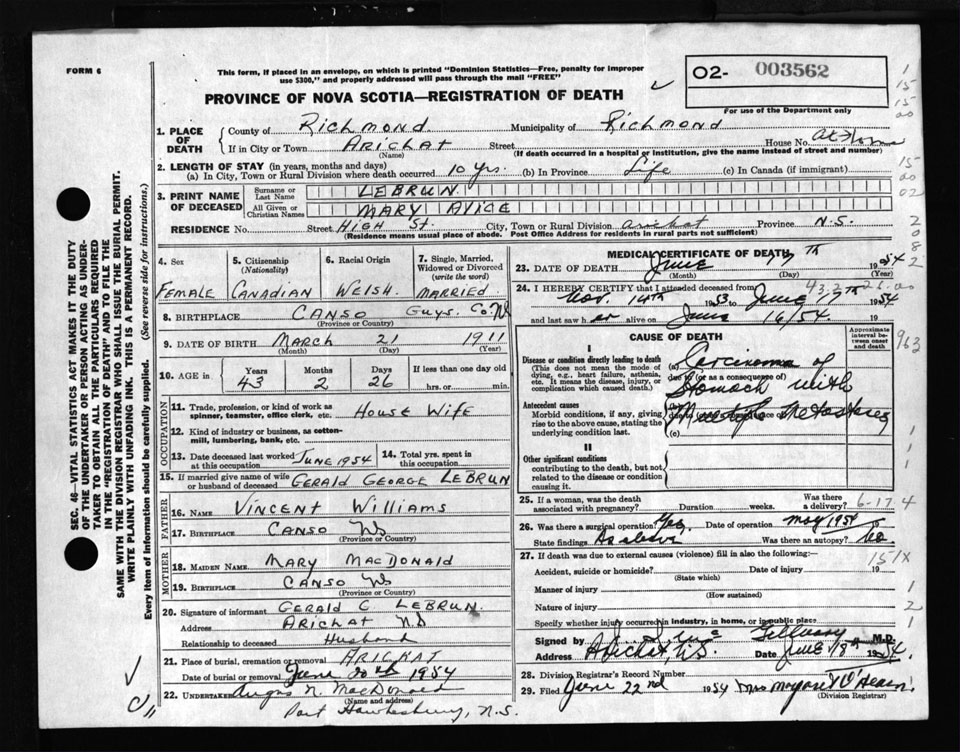 FORM 6
This form, if placed in an envelope, on which is printed "Dominion Statistics—Free, penalty for improper
use $300," and properly addressed will pass through the mail "FREE"
02- 003562
For use of the Department only
PROVINCE OF NOVA SCOTIA—REGISTRATION OF DEATH
1. PLACE OF DEATH
County of Richmond Municipality of Richmond
If in City or Town ARICHAT Street House No. At Home
(Name) (If death occurred in a hospital or institution, give the name instead of street and number)
2. LENGTH OF STAY (in years, months and days)
(a) In City, Town or Rural Division where death occurred 10 yrs. (b) In Province Life (c) In Canada (if immigrant)
3. PRINT NAME OF DECEASED
Surname or Last Name LEBRUN
All Given or Christian Names MARY
RESIDENCE No. Street HIGH St City, Town or Rural Division Arichat Province N.S.
(Residence means usual place of abode. Post Office Address for residents in rural parts not sufficient)
4. Sex FEMALE
5. Citizenship (Nationality) CANADIAN
6. Racial Origin WELSH
7. Single, Married, Widowed or Divorced (write the word) MARRIED
8. BIRTHPLACE CANSO Guys. Co. NS
(Province or Country)
9. DATE OF BIRTH MARCH 21 1911
(Month) (Day) (Year)
10. AGE in Years 43 Months 2 Days 26 If less than one day old hrs. or min.
OCCUPATION
11. Trade, profession, or kind of work as spinner, teamster, office clerk, etc. HOUSE WIFE
12. Kind of industry or business, as cotton-mill, lumbering, bank, etc.
13. Date deceased last worked at this occupation JUNE 1954
14. Total yrs. spent in this occupation
15. If married give name of wife or husband of deceased GERALD GEORGE LEBRUN
FATHER
16. NAME VINCENT WILLIAMS
17. BIRTHPLACE CANSO NS
(Province or Country)
MOTHER
18. MAIDEN NAME MARY MACDONALD
19. BIRTHPLACE CANSO NS
(Province or Country)
20. Signature of informant GERALD G LEBRUN
Address ARICHAT N.S
Relationship to deceased Husband
21. Place of burial, cremation or removal ARICHAT
Date of burial or removal June 20th 1954
22. UNDERTAKER Angus N. MacDonald
(Name and address)
Port Hawkesbury, N.S.
MEDICAL CERTIFICATE OF DEATH
23. DATE OF DEATH June 17TH 1954
(Month) (Day) (Year)
24. I HEREBY CERTIFY that I attended deceased from
Nov. 14TH 1953 to June 17TH 1954
and last saw her alive on June 16/54
CAUSE OF DEATH
Approximate interval between onset and death
I
Disease or condition directly leading to death
(This does not mean the mode of dying, e.g., heart failure, asthenia, etc. It means the disease, injury, or complication which caused death.)
(a) Carcinoma of
due to (or as a consequence of)
Stomach with
Antecedent causes
Morbid conditions, if any, giving rise to the above cause, stating the underlying condition last.
Multiple Metastases
(c)
II
Other significant conditions
contributing to the death, but not related to the disease or condition causing it.
25. If a woman, was the death associated with pregnancy? Duration weeks. Was there a delivery?
6-17-4
26. Was there a surgical operation? Yes Date of operation May 1954
State findings As above Was there an autopsy? No
27. If death was due to external causes (violence) fill in also the following:—
Accident, suicide or homicide? Date of injury 19
(State which)
151X
Manner of injury
(How sustained)
Nature of injury
Specify whether injury occurred in industry, in home, or in public place
Signed by M.D.
Address Arichat, N.S. Date June 18th 1954
28. Division Registrar's Record Number
29. Filed June 22nd 1954
(Division Registrar)
SEC. 46—VITAL STATISTICS ACT MAKES IT THE DUTY
OF THE UNDERTAKER OR PERSON ACTING AS UNDER-
TAKER TO OBTAIN ALL THE PARTICULARS REQUIRED
IN THE "REGISTRATION OF DEATH" AND TO FILE THE
SAME WITH THE DIVISION REGISTRAR WHO SHALL ISSUE THE BURIAL PERMIT.
WRITE PLAINLY WITH UNFADING INK. THIS IS A PERMANENT RECORD.
Every item of Information should be carefully supplied. (See reverse side for instructions.)